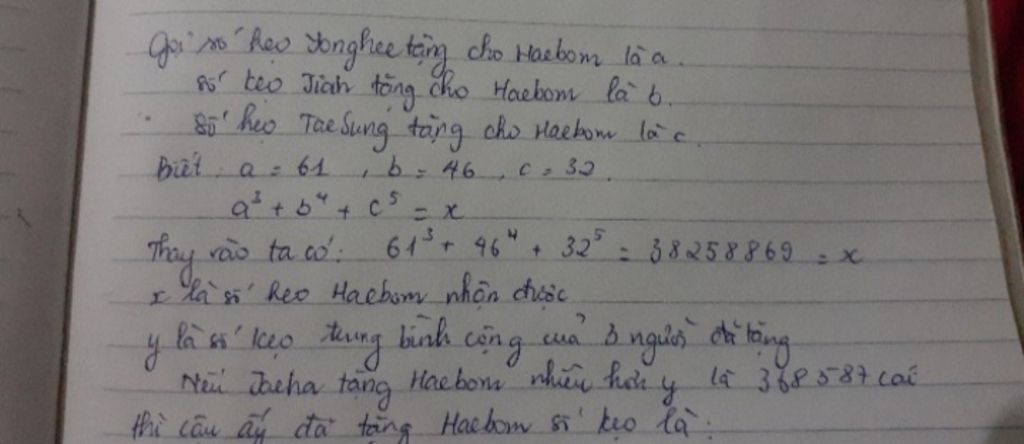 Gọi số kẹo Yonghee tặng cho Haebom là a.
số kẹo Jiah tặng cho Haebom là b.
Số kẹo TaeSung tặng cho Haebom là c
Biết: a = 61, b = 46, c = 32.
a³ + b⁴ + c⁵ = x
Thay vào ta có: 61³ + 46⁴ + 32⁵ = 38258869 = x
x là số kẹo Haebom nhận được
y là số kẹo trung bình cộng của 3 người đã tặng
Nếu Jaeha tặng Haebom nhiều hơn y là 368587 cái
thì cậu ấy đã tặng Haebom số kẹo là: